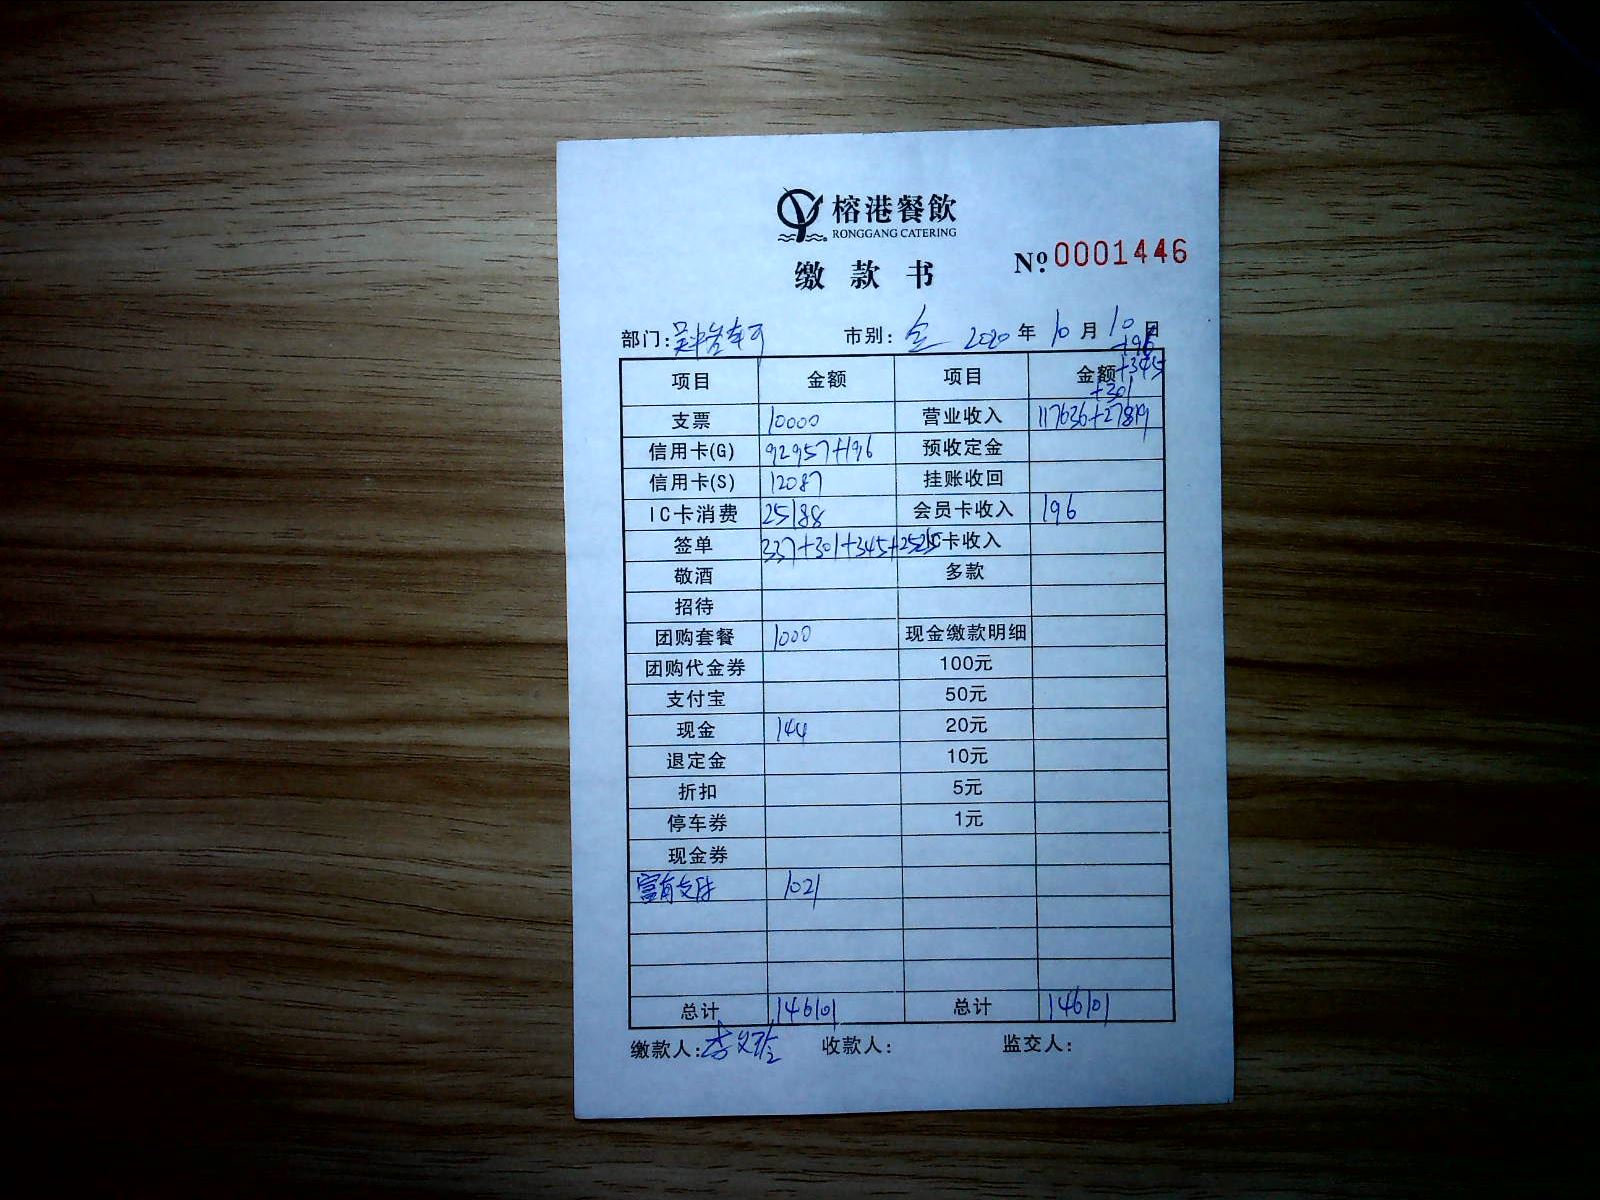 榕港餐飲
RONGGANG CATERING
缴款书
№ 0001446
部门: 市别: 全 2020 年 10 月 10 日
+196
项目 金额 项目 金额 +345
+301
支票 10000 营业收入 117636+27819
信用卡(G) 92957+196 预收定金
信用卡(S) 12087 挂账收回
IC卡消费 25188 会员卡收入 196
签单 337+301+345+2525 IC卡收入
敬酒 多款
招待
团购套餐 1000 现金缴款明细
团购代金券 100元
支付宝 50元
现金 144 20元
退定金 10元
折扣 5元
停车券 1元
现金券
富有支付 1021
总计 146101 总计 146101
缴款人: 收款人: 监交人: